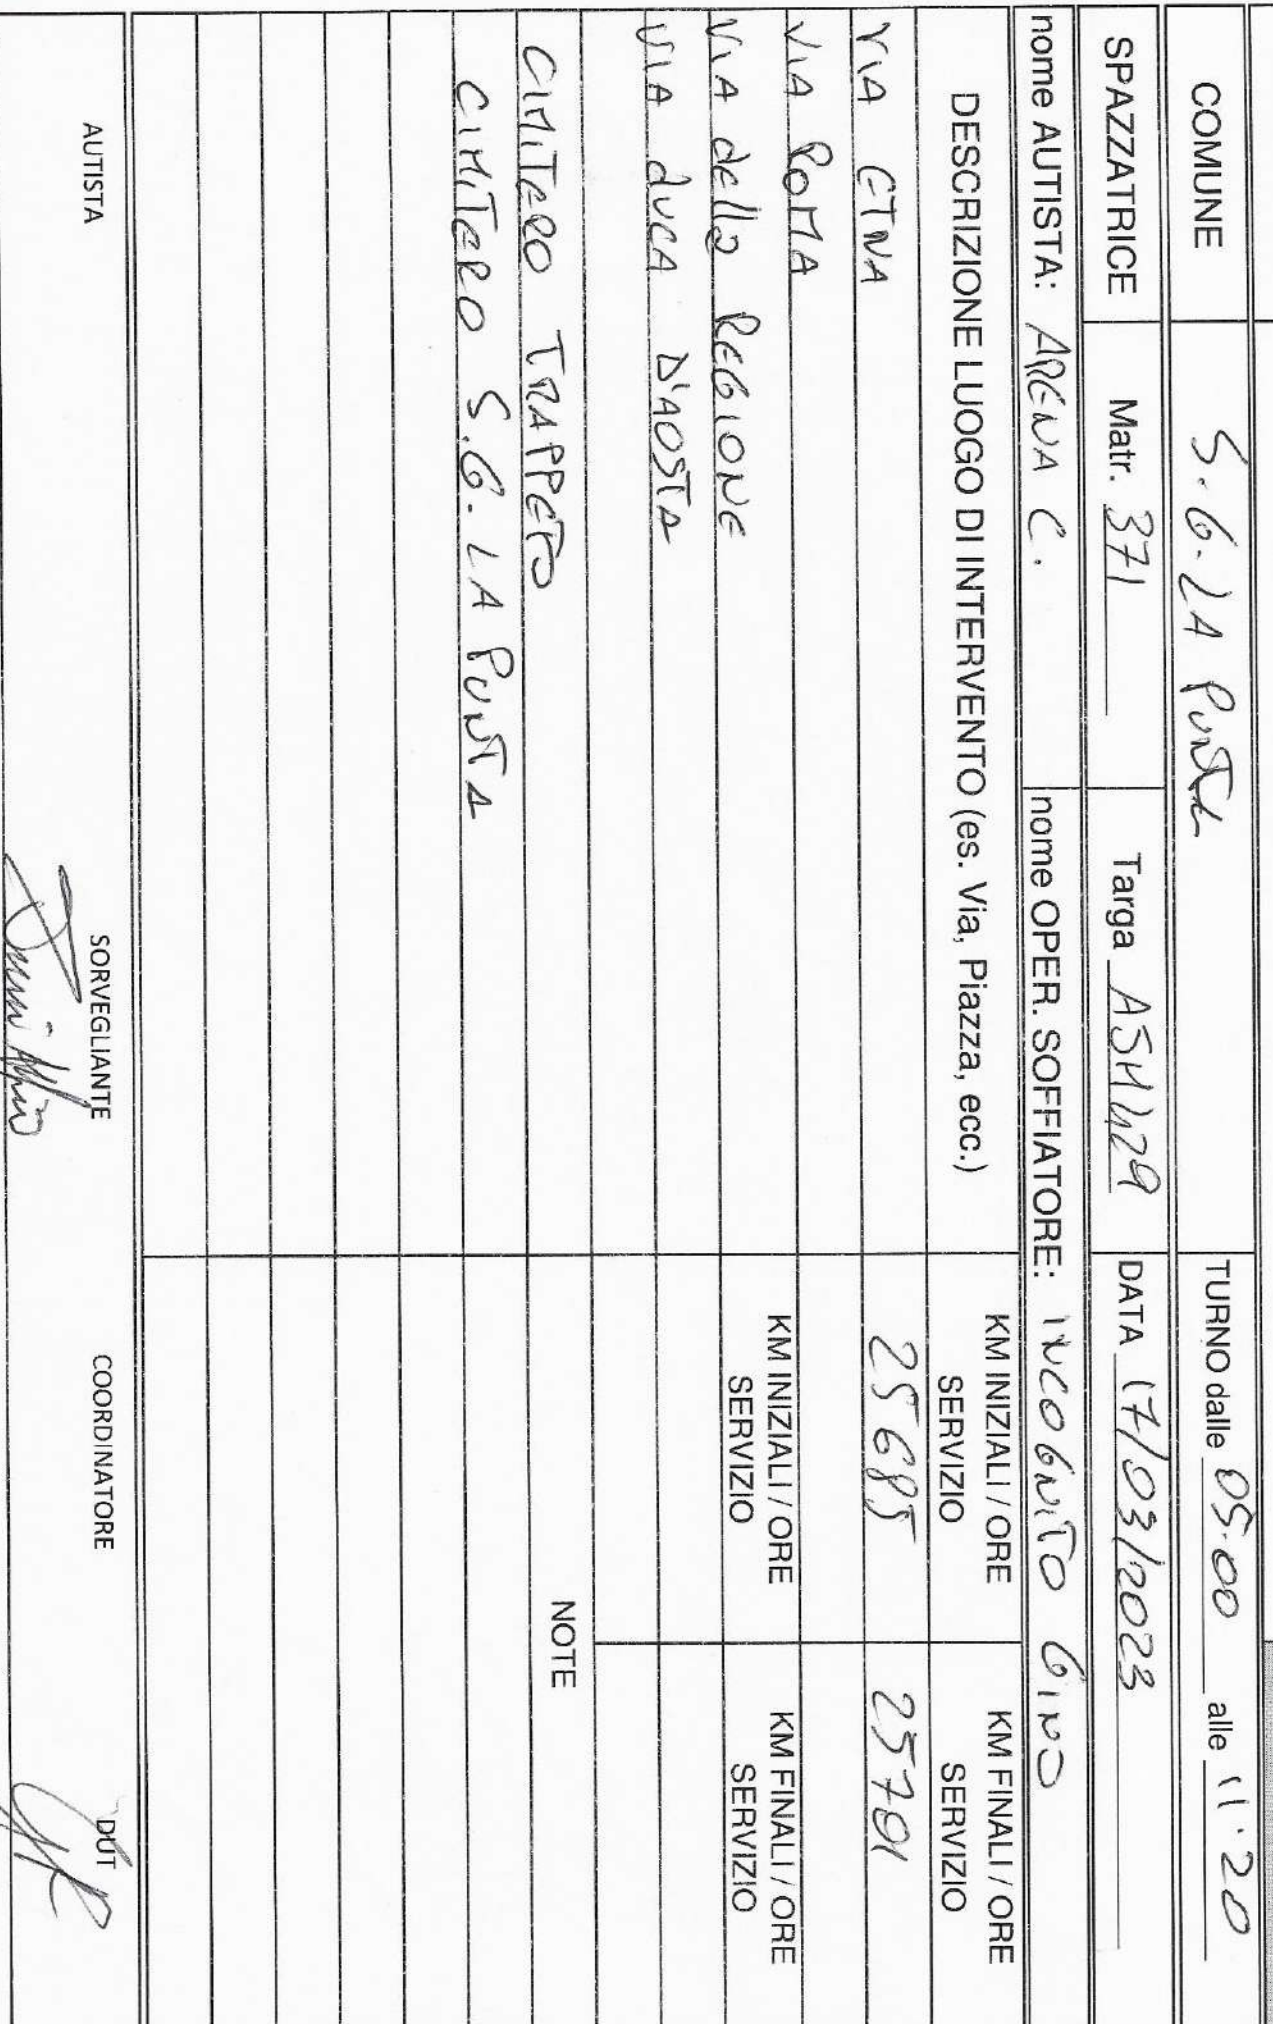 COMUNE S.G. LA Punta TURNO dalle 05.00 alle 11.20
SPAZZATRICE Matr. 371 Targa ASM429 DATA 17/03/2023
nome AUTISTA: ARENA C. nome OPER. SOFFIATORE: INCOGNITO GINO
DESCRIZIONE LUOGO DI INTERVENTO (es. Via, Piazza, ecc.) KM INIZIALI / ORE SERVIZIO KM FINALI / ORE SERVIZIO
VIA ETNA 25685 25701
VIA ROMA
VIA della REGIONE KM INIZIALI / ORE SERVIZIO KM FINALI / ORE SERVIZIO
VIA dUCA D'AOSTA
CIMITERO TRAPPETO NOTE
CIMITERO S.G. LA PUNTA
AUTISTA SORVEGLIANTE COORDINATORE DUT